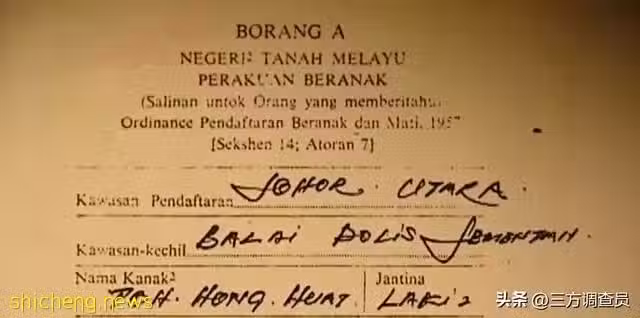 BORANG A
NEGERI² TANAH MELAYU
PERAKUAN BERANAK
(Salinan untok Orang yang memberitahu
Ordinance Pendaftaran Beranak dan Mati, 1957
[Sekshen 14; Atoran 7]
Kawasan Pendaftaran JOHOR UTARA.
Kawasan-kechil BALAI POLIS JEMENTAH.
Nama Kanak² Jantina
HONG. HUAT. LAKI²
shicheng.news
头条 @三方调查员